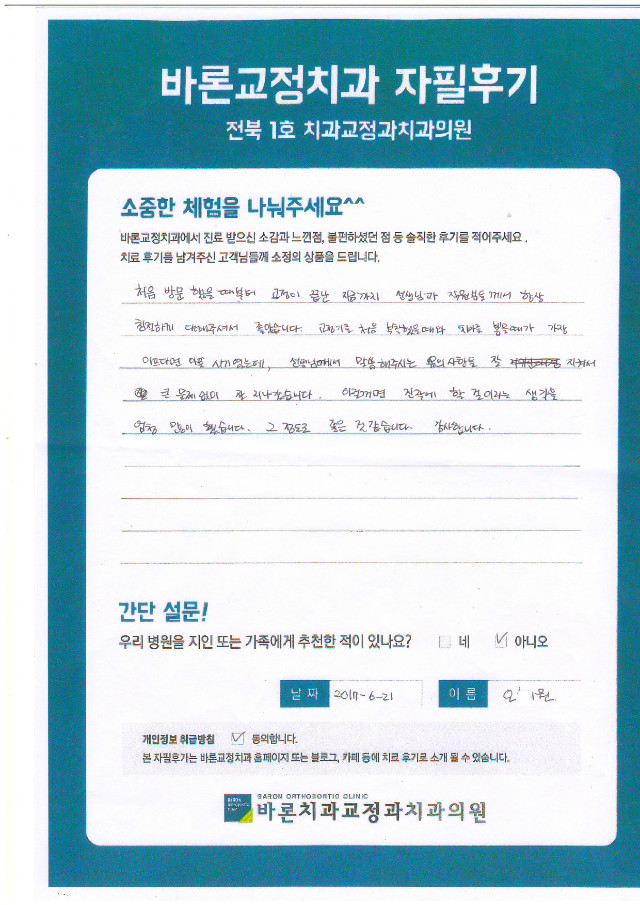 바론교정치과 자필후기
전북 1호 치과교정과치과의원
소중한 체험을 나눠주세요^^
바론교정치과에서 진료 받으신 소감과 느낀점, 불편하셨던 점 등 솔직한 후기를 적어주세요.
치료 후기를 남겨주신 고객님들께 소정의 상품을 드립니다.
처음 방문 했을때부터 교정이 끝난 지금까지 선생님과 직원분들께서 항상
친절하게 대해주셔서 좋았습니다. 교정기를 처음 부착했을때와 치아를 뽑을때가 가장
아프다면 아플 시기였는데, 선생님께서 말씀해주시는 주의사항을 잘 지켜서
큰 문제없이 잘 지나갔습니다. 이럴꺼면 진작에 할 걸이라는 생각을
엄청 많이 했습니다. 그 정도로 좋은 것 같습니다. 감사합니다.
간단 설문!
우리 병원을 지인 또는 가족에게 추천한 적이 있나요? 네 아니오
날 짜 2017-6-21 이 름
개인정보 취급방침 동의합니다.
본 자필후기는 바론교정치과 홈페이지 또는 블로그, 카페 등에 치료 후기로 소개 될 수 있습니다.
BARON ORTHODONTIC CLINIC
바론치과교정과치과의원